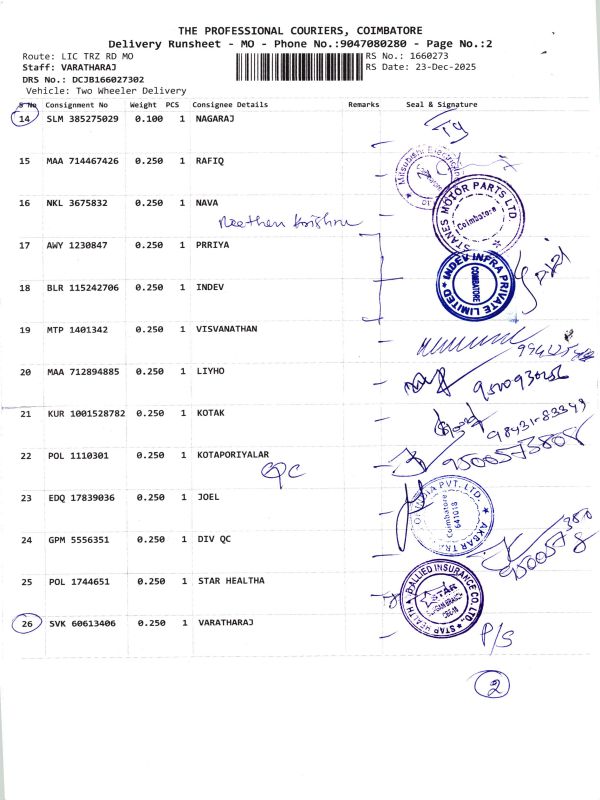 THE PROFESSIONAL COURIERS, COIMBATORE
Delivery Runsheet - MO - Phone No.:9047080280 - Page No.:2
Route: LIC TRZ RD MO RS No.: 1660273
Staff: VARATHARAJ RS Date: 23-Dec-2025
DRS No.: DCJB166027302
Vehicle: Two Wheeler Delivery
S No Consignment No Weight PCS Consignee Details Remarks Seal & Signature
14 SLM 385275029 0.100 1 NAGARAJ
15 MAA 714467426 0.250 1 RAFIQ
16 NKL 3675832 0.250 1 NAVA
STANES MOTOR PARTS LTD.
Coimbatore
17 AWY 1230847 0.250 1 PRRIYA
18 BLR 115242706 0.250 1 INDEV
INDEV INFRA PRIVATE LIMITED
COIMBATORE
19 MTP 1401342 0.250 1 VISVANATHAN
20 MAA 712894885 0.250 1 LIYHO
21 KUR 1001528782 0.250 1 KOTAK
98431-83349
22 POL 1110301 0.250 1 KOTAPORIYALAR
9500573808
23 EDQ 17839036 0.250 1 JOEL
Coimbatore
641018
24 GPM 5556351 0.250 1 DIV QC
25 POL 1744651 0.250 1 STAR HEALTHA
STAR HEALTH & ALLIED INSURANCE CO. LTD.,
STAR
26 SVK 60613406 0.250 1 VARATHARAJ
P/S
2